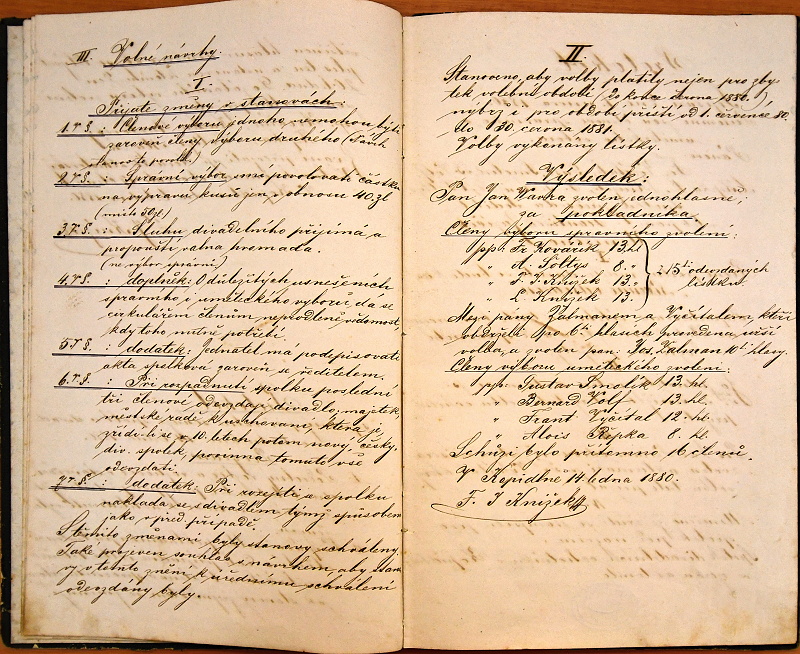 III. Volné návrhy.
I.
Přijaté změny v stanovách:
1. r. §. : Členové výboru jednoho nemohou býti
zároveň členy výboru druhého (Návrh
starosto povol.)
2. r. §. : Správní výbor smí povolovati částku
na výpravu kusů jen v obnosu 40 zl
(místo 50 zl.)
3. r. §. : Sluhu divadelního přijímá a
propouští valná hromada.
(ne výbor správní)
4. r. §. : doplněk: O důležitých usneseních
správního i uměleckého výboru dá se
cirkulářem členům neprodleně vědomost,
kdy toho nutně potřebí
5. r. §. : dodatek: Jednatel má podpisovati
akta spolková zároveň s ředitelem.
6. r. §. : Při rozpadnutí spolku poslední
tři členové odevzdají divadlo, majetek,
městské radě k uschování, která je,
zřídí-li se v 10 letech potom nový, český,
div. spolek, povinna tomuto vše
odevzdati.
: dodatek: Při rozejití a spolku
nakládá se s divadlem týmž způsobem
jako v před. případě.
S těmito změnami byly stanovy schváleny
Také projeven souhlas s návrhem, aby stano
vy v tomto znění k úřednímu schválení
odevzdány byly.
II.
Stanoveno, aby volby platily nejen pro zby-
tek volební období (do konce února 1880.)
nýbrž i pro období příští od 1. července 80.
do 30. června 1881.
Volby vykonány lístky.
Výsledek:
Pan Jan Vavka zvolen jednohlasně,
za pokladníka.
Členy výboru správního zvoleni:
pp. Fr. Kovářík 13. hl.
„ A. Šoltys 8. „
„ F. I. Knížek 13. „
„ L. Knížek 13. „
z 15ti odevzdaných
lístků.
Mezi pány Zalmanem a Vyčítalem, kteří
obdrželi po 6ti hlasích provedena užší
volba, a zvolen pan: Jos. Zalman 10ti hlasy.
Členy výboru uměleckého zvoleni:
pp. Gustav Smolík 13. hl.
„ Bernard Volf 13. hl.
„ Frant Vyčítal 12. hl.
„ Alois Řepka 8. hl.
Schůzi bylo přítomno 16 členů.
V Kopidlně 14. ledna 1880.
F. I. Knížek